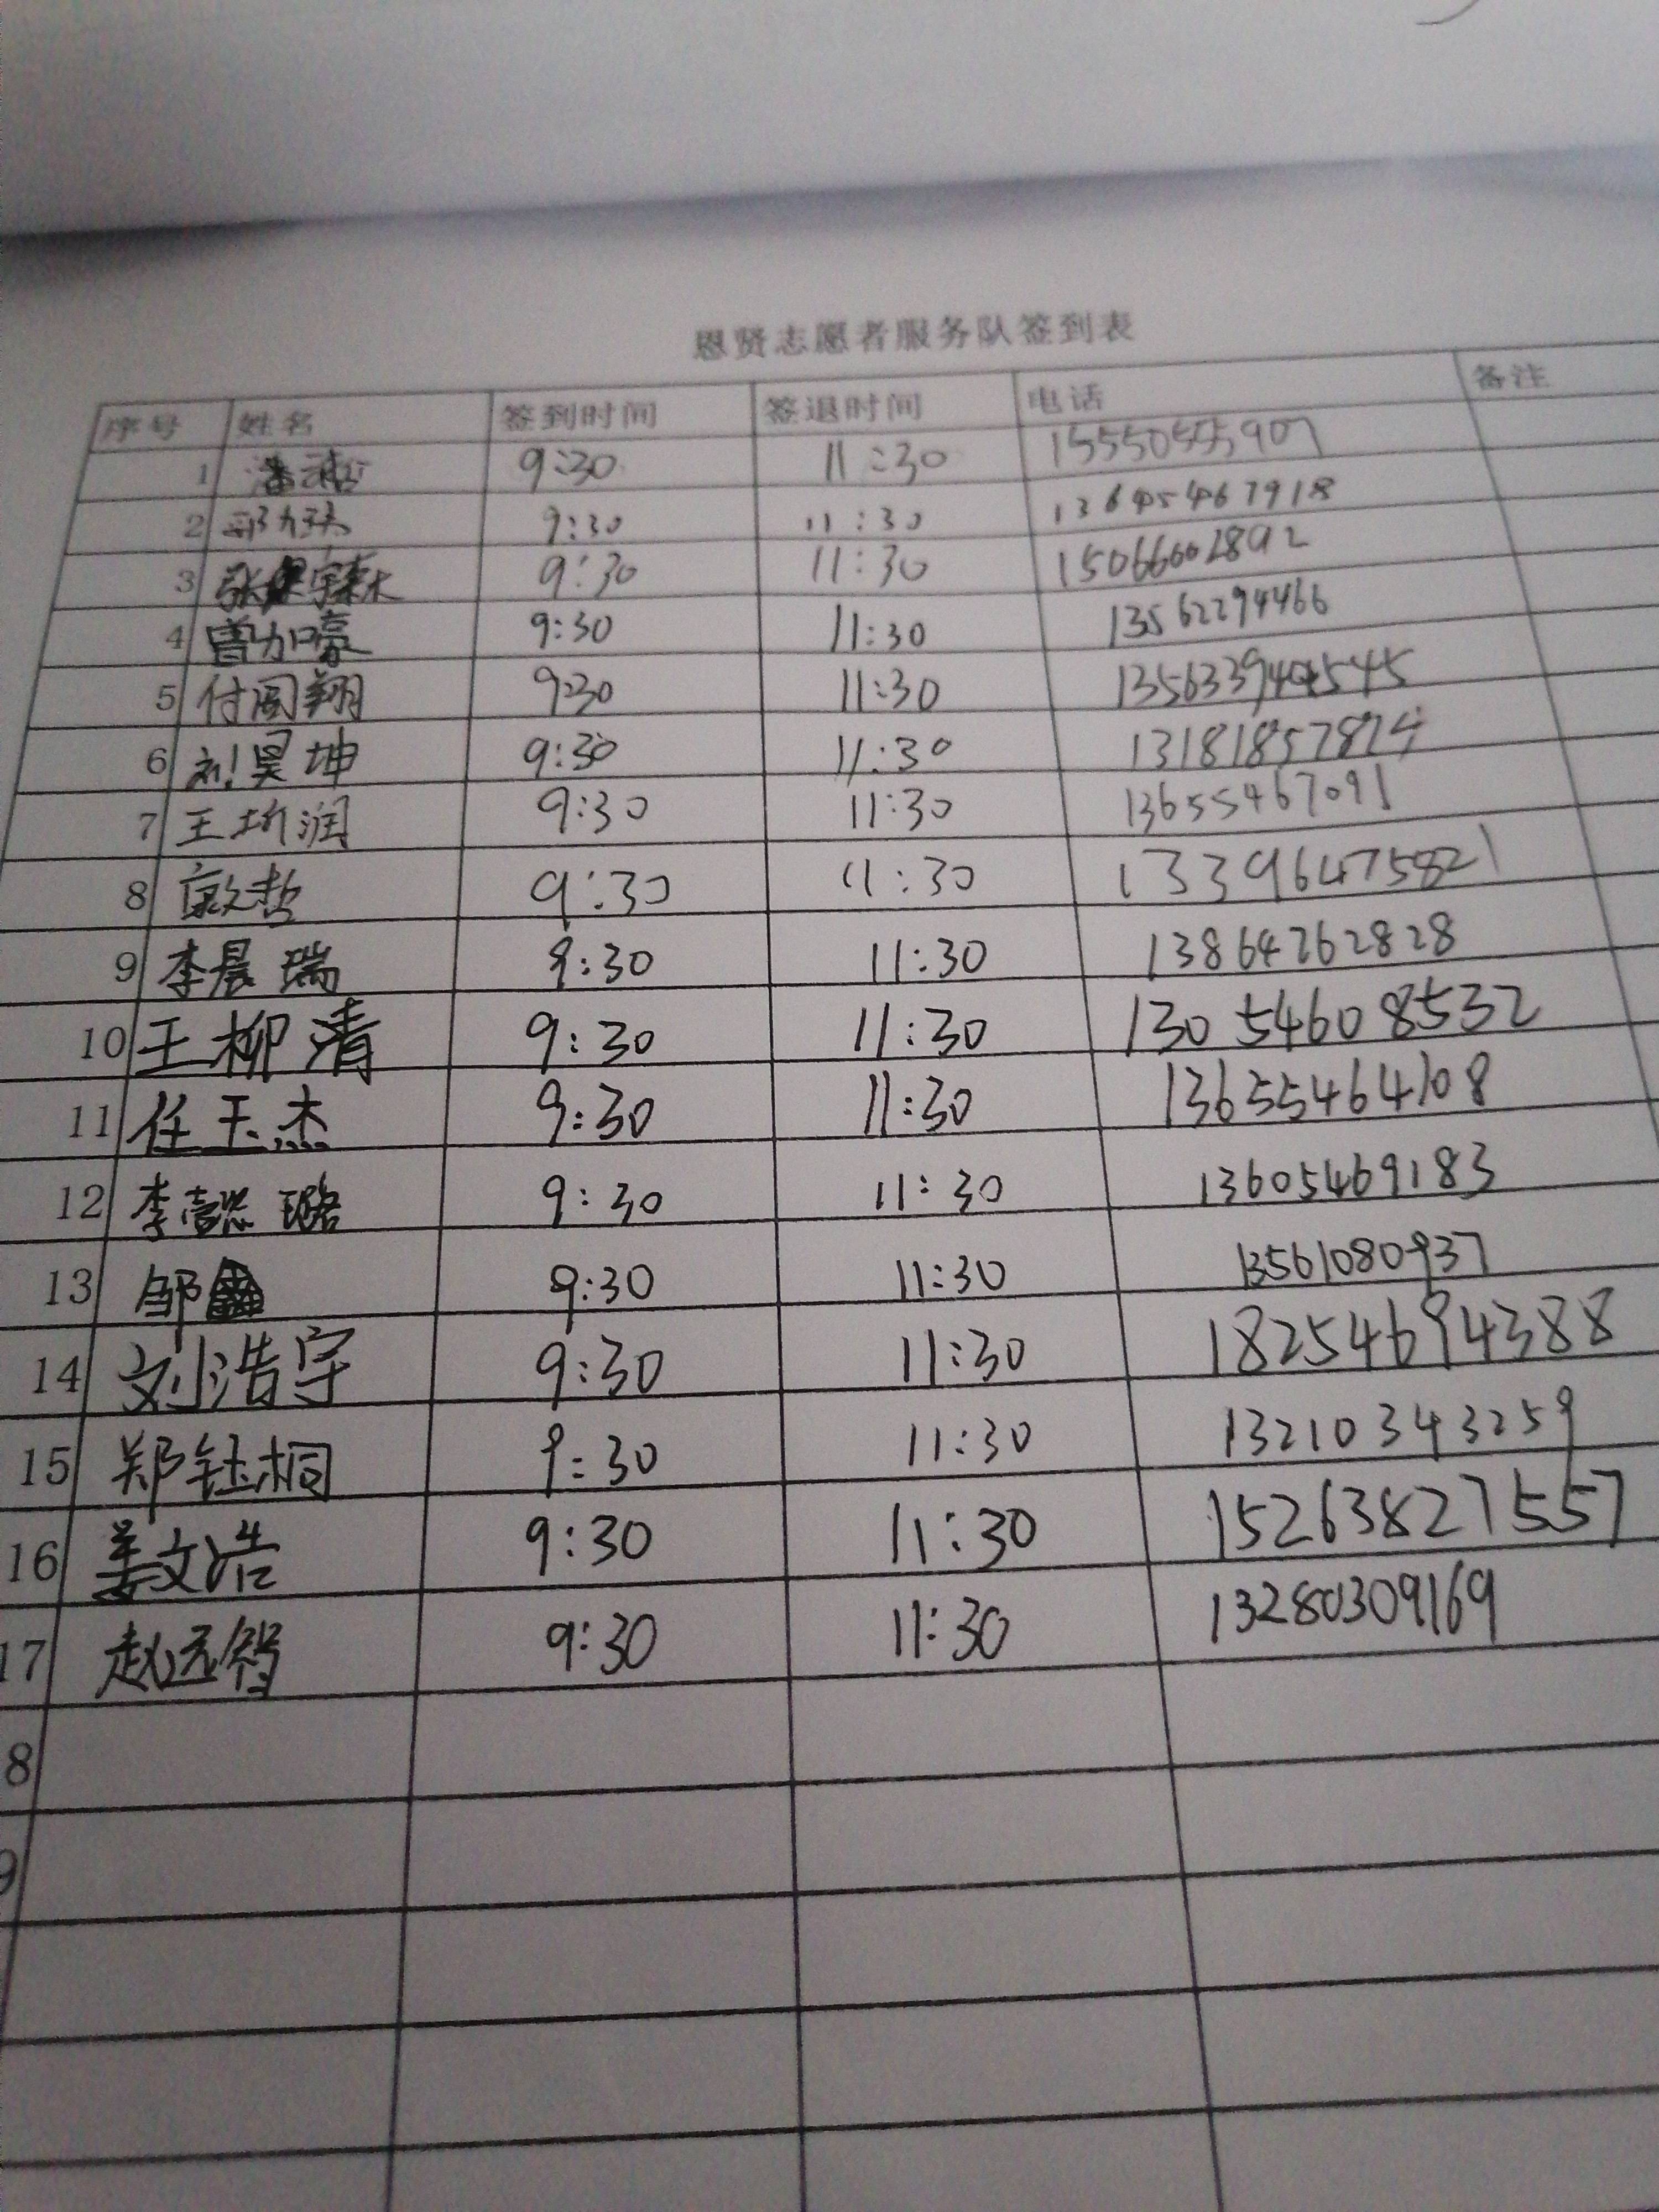 恩贤志愿者服务队签到表
序号 姓名 签到时间 签退时间 电话 备注
1 9:30 11:30
2 9:30 11:30
3 9:30 11:30
4 曾加豪 9:30 11:30 13562294466
5 付阁翔 9:30 11:30
6 刘昊坤 9:30 11:30
7 王圻润 9:30 11:30 13655467091
8 9:30 11:30 13396475821
9 李晨瑞 9:30 11:30 13864262828
10 王柳清 9:30 11:30 13054608532
11 任玉杰 9:30 11:30 13655464108
12 李懿璐 9:30 11:30 13605469183
13 邹鑫 9:30 11:30 13561080937
14 刘浩宇 9:30 11:30 18254694388
15 郑钰桐 9:30 11:30 13210343259
16 姜文浩 9:30 11:30 15263827557
17 赵远智 9:30 11:30 13280309169
8
9